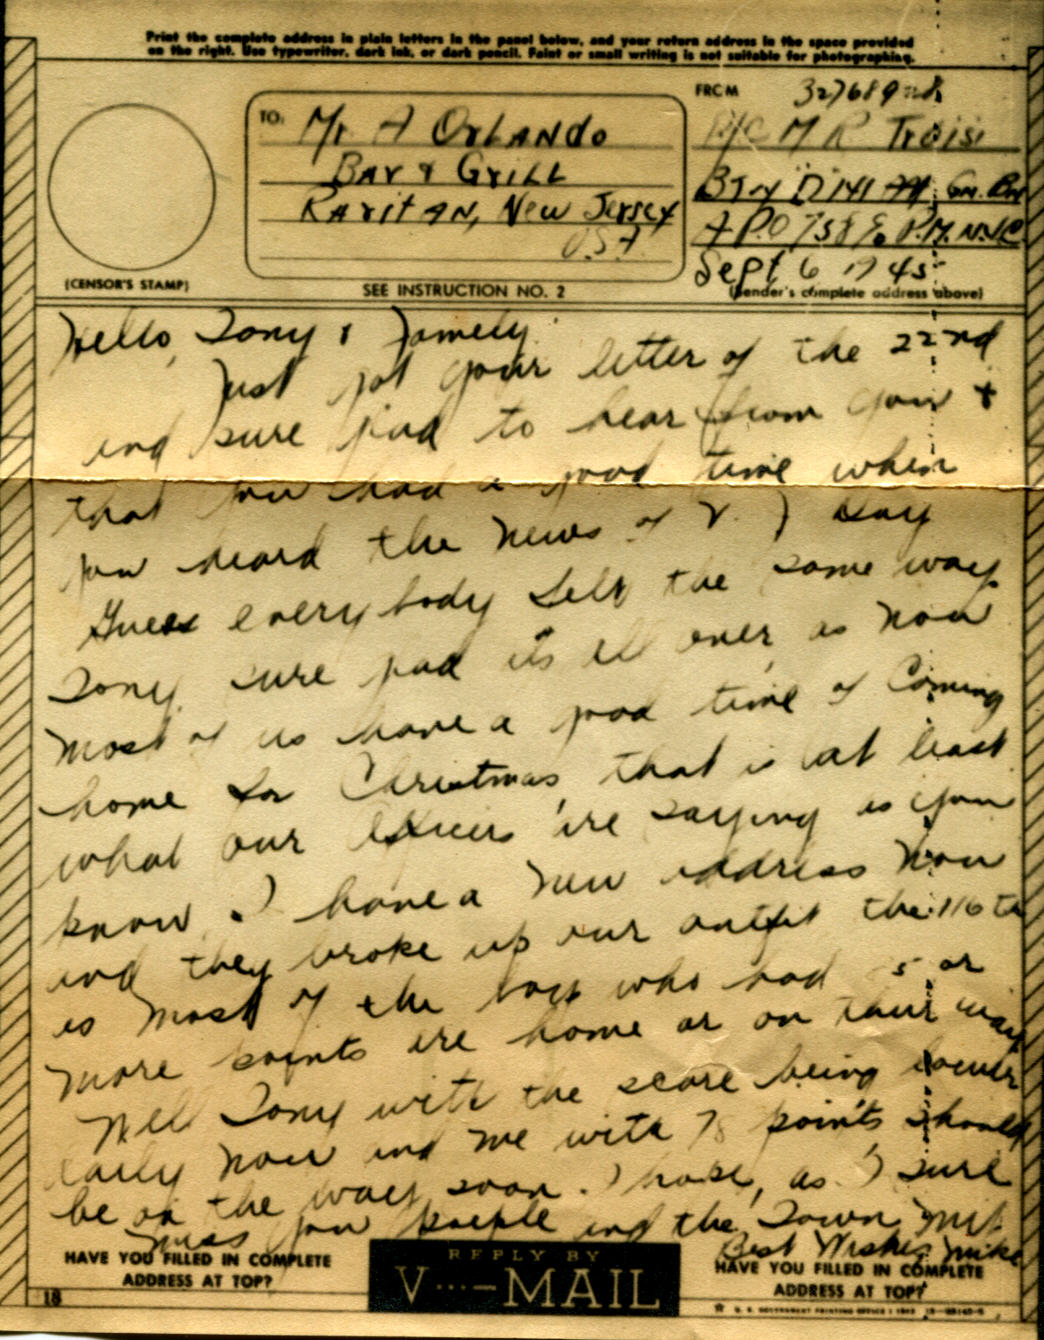 Print the complete address in plain letters in the panel below, and your return address in the space provided
on the right. Use typewriter, dark ink, or dark pencil. Faint or small writing is not suitable for photographing.
FROM
TO:
Mr A Orlando
Bar & Grill
Raritan, New Jersey
U.S.A.
Pfc M R Troisi
Btry D 141 AA Gn. Bn
A.P.O 758 % P.M. N.Y.C.
Sept 6 1945
(CENSOR'S STAMP)
SEE INSTRUCTION NO. 2
(Sender's complete address above)
Hello, Tony & Family:
Just got your letter of the 22nd
and sure glad to hear from you &
that you had a good time when
you heard the news of V. J Day
Guess everybody felt the same way
Tony, sure glad its all over as now
most of us have a good time of Coming
home for Christmas that is at least
what our Officers are saying as you
know, I have a new address now
and they broke up our outfit the 116th
as most of the boys who had 5 or
more points are home or on their way
Well Tony with the score being lower
daily now and me with 78 points should
be on the way soon. I hope, as I sure
miss you people and the Town,
Best Wishes, Mike
HAVE YOU FILLED IN COMPLETE
ADDRESS AT TOP?
REPLY BY
V···—MAIL
HAVE YOU FILLED IN COMPLETE
ADDRESS AT TOP?
18
U. S. GOVERNMENT PRINTING OFFICE